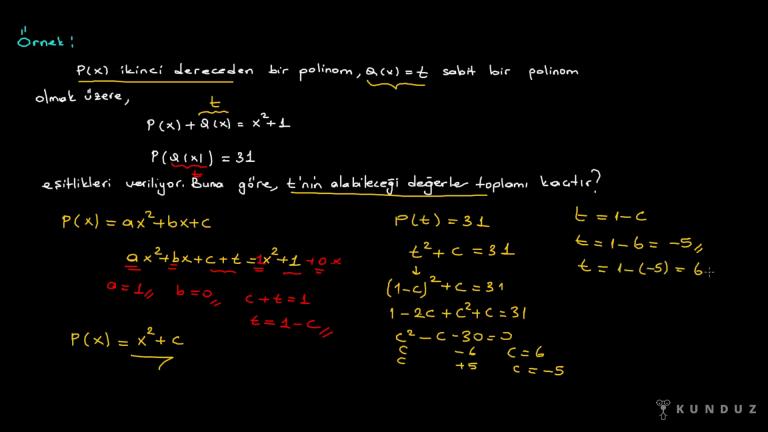 Örnek:
P(x) ikinci dereceden bir polinom, Q(x) = t sabit bir polinom
olmak üzere,
t
P(x) + Q(x) = x²+1
P(Q(x)) = 31
t
eşitlikleri veriliyor. Buna göre, t'nin alabileceği değerler toplamı kaçtır?
P(x) = ax²+bx+c
ax²+bx+c+t = 1x²+1+0x
a=1 b=0 c+t=1
t=1-c
P(x) = x²+c
P(t) = 31
t²+c = 31
(1-c)²+c = 31
1-2c+c²+c = 31
c²-c-30=0
c -6 c=6
c +5 c=-5
t = 1-c
t = 1-6 = -5
t = 1-(-5) = 6
KUNDUZ